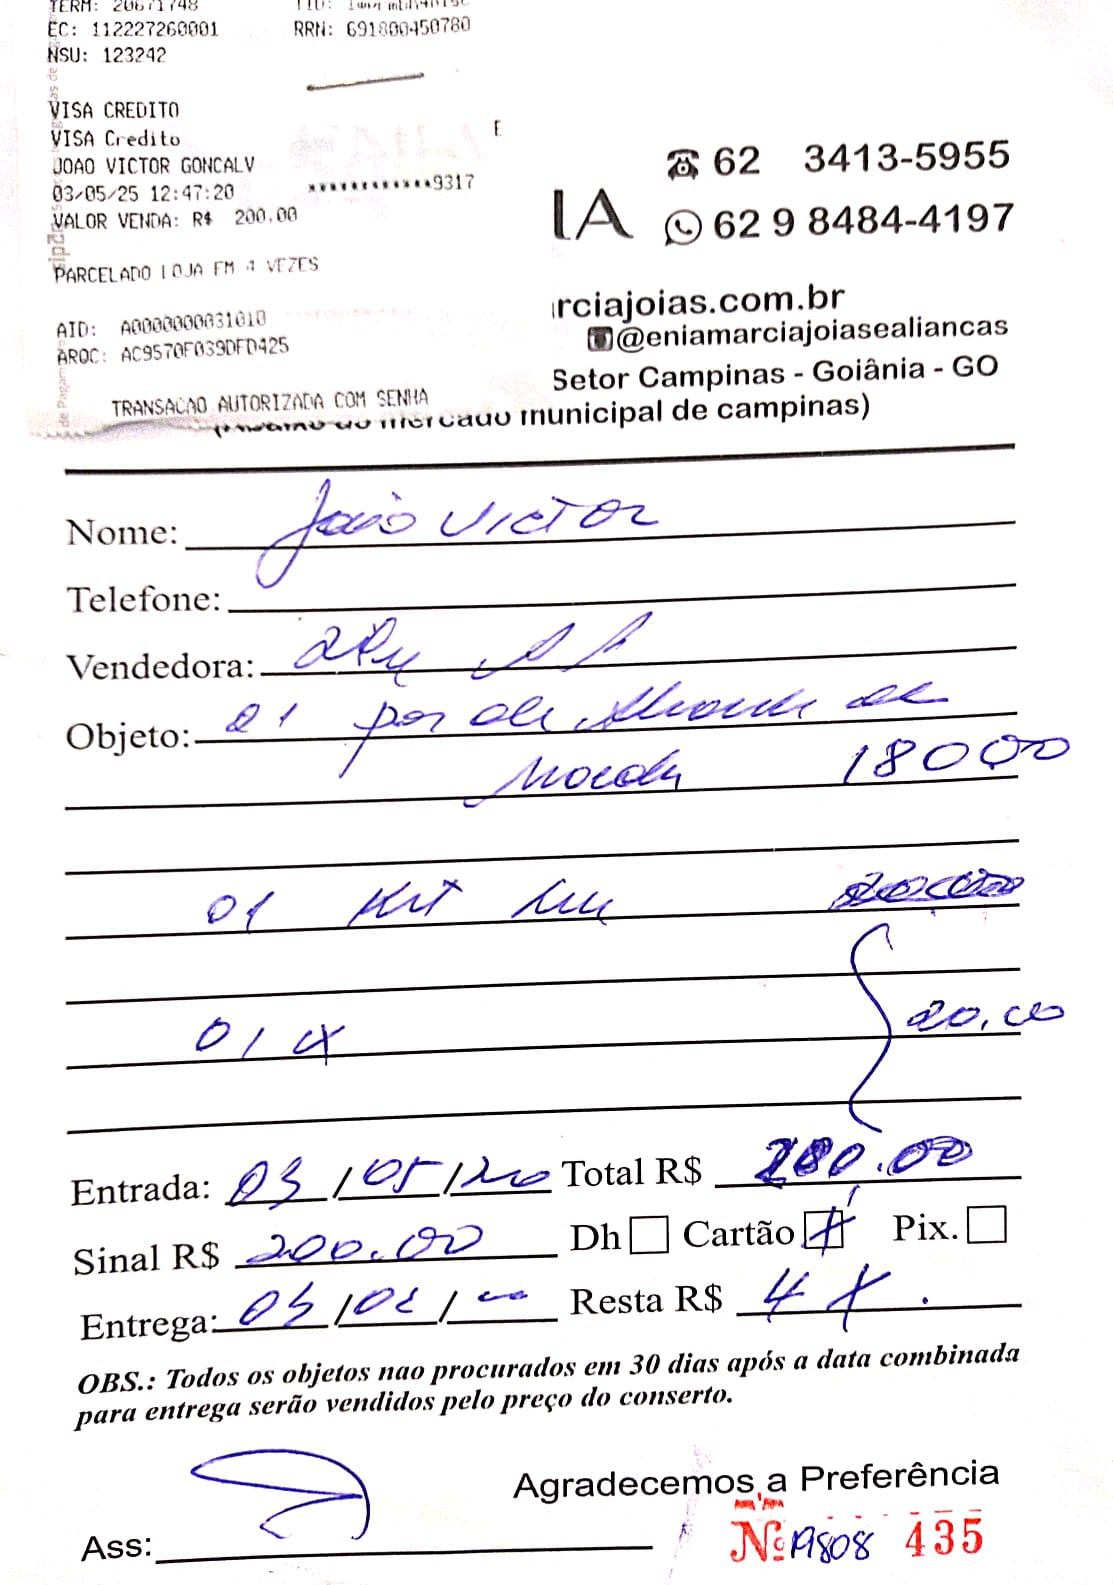 TERM: 20671748
EC: 112227260001 RRN: 691800450780
NSU: 123242
VISA CREDITO
VISA Credito
JOAO VICTOR GONCALV
03/05/25 12:47:20 ************9317
VALOR VENDA: R$ 200.00
PARCELADO LOJA EM 4 VEZES
AID: A0000000031010
ARQC: AC9570F039DFD425
TRANSACAO AUTORIZADA COM SENHA
62 3413-5955
IA 62 9 8484-4197
rciajoias.com.br
@eniamarciajoiasealiancas
Setor Campinas - Goiânia - GO
mercado municipal de campinas)
Nome: João Victor
Telefone:
Vendedora:
Objeto: 01 par de de
Moeda 18000
01 Kit
20,00
01
Entrada: 03/05/ Total R$ 200.00
Sinal R$ 200.00 Dh Cartão X Pix.
Entrega: 03/ Resta R$ 4 X.
OBS.: Todos os objetos nao procurados em 30 dias após a data combinada
para entrega serão vendidos pelo preço do conserto.
Agradecemos a Preferência
Ass: Nº 19808 435